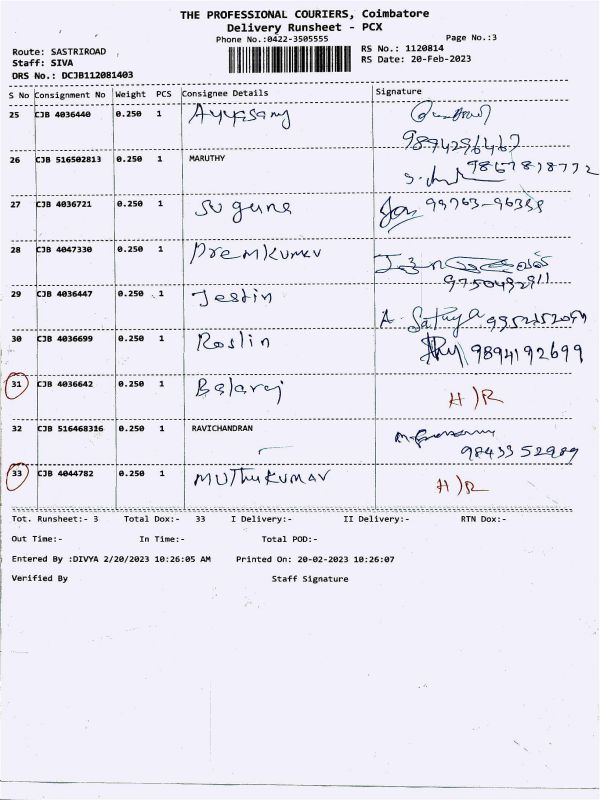 THE PROFESSIONAL COURIERS, Coimbatore
Delivery Runsheet - PCX
Phone No.:0422-3505555
Page No.:3
Route: SASTRIROAD
RS No.: 1120814
Staff: SIVA
RS Date: 20-Feb-2023
DRS No.: DCJB112081403
S No Consignment No Weight PCS Consignee Details Signature
25 CJB 4036440 0.250 1 Ayyasamy
9894296467
26 CJB 516502813 0.250 1 MARUTHY 9867878772
27 CJB 4036721 0.250 1 Suguna
28 CJB 4047330 0.250 1 Premkumar
9750492911
29 CJB 4036447 0.250 1 Jestin
A. Sathya
30 CJB 4036699 0.250 1 Roslin 9894192699
31 CJB 4036642 0.250 1 Balaraj H)R
32 CJB 516468316 0.250 1 RAVICHANDRAN
98433 52989
33 CJB 4044782 0.250 1 Muthukumar H)R
Tot. Runsheet:- 3 Total Dox:- 33 I Delivery:- II Delivery:- RTN Dox:-
Out Time:- In Time:- Total POD:-
Entered By :DIVYA 2/20/2023 10:26:05 AM Printed On: 20-02-2023 10:26:07
Verified By Staff Signature